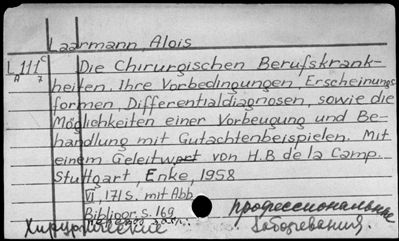 Laarmann, Alois
L 111 c
A 7
Die Chirurgischen Berufskrank-
heiten, Ihre Vorbedingungen, Erscheinungs
formen, Differentialdiagnosen, sowie die
Möglichkeiten einer Vorbeugung und Be-
handlung mit Gutachtenbeispielen. Mit
einem Geleitwort von H.B de la Camp.
Stuttgart, Enke, 1958
VI, 171 S. mit Abb
Bibliogr. s. 169
Хирургические профессиональные
заболевания.